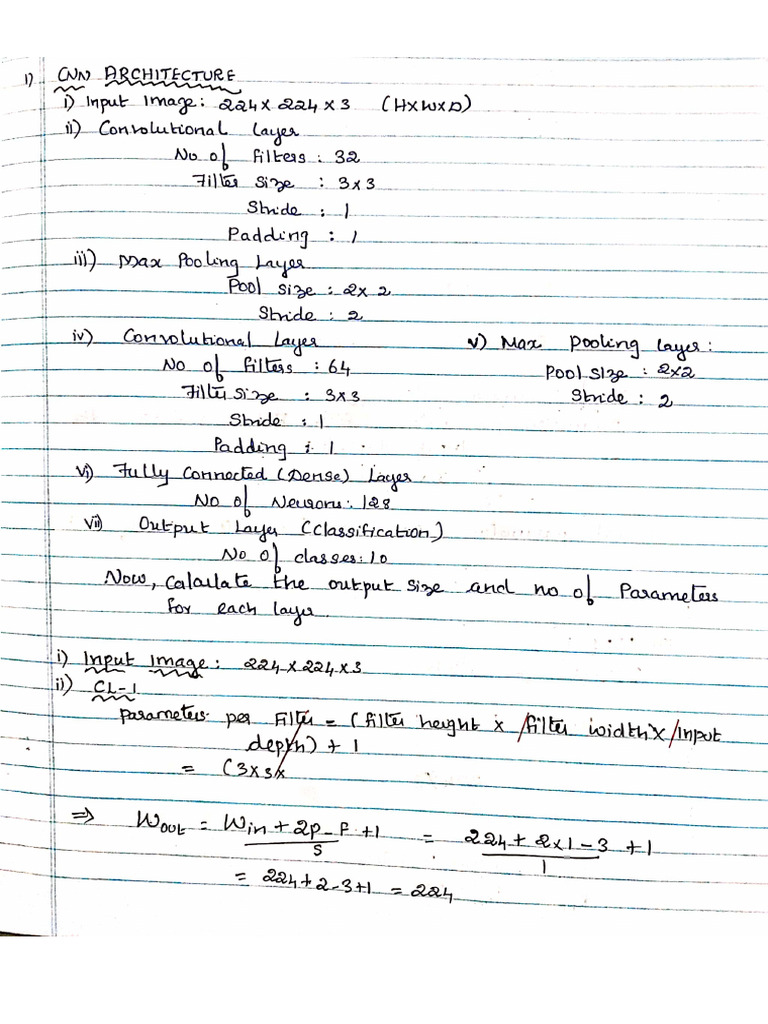 1) CNN ARCHITECTURE
i) Input Image: 224 x 224 x 3 (HxWxD)
ii) Convolutional Layer
No of filters : 32
Filter size : 3x3
Stride : 1
Padding : 1
iii) Max Pooling Layer
Pool size : 2x2
Stride : 2
iv) Convolutional Layer
No of filters : 64
Filter size : 3x3
Stride : 1
Padding : 1
v) Max Pooling Layer :
Pool size : 2x2
Stride : 2
vi) Fully Connected (Dense) Layer
No of Neurons : 128
vii) Output Layer (Classification)
No of classes : 10
Now, Calculate the output size and no of Parameters
for each layer
i) Input Image : 224 x 224 x 3
ii) CL-1
Parameters per Filter = (filter height x filter width x input
depth) + 1
= (3x3x
⇒ Wout = Win + 2p - F / S + 1 = 224 + 2x1 - 3 / 1 + 1
= 224 + 2 - 3 + 1 = 224